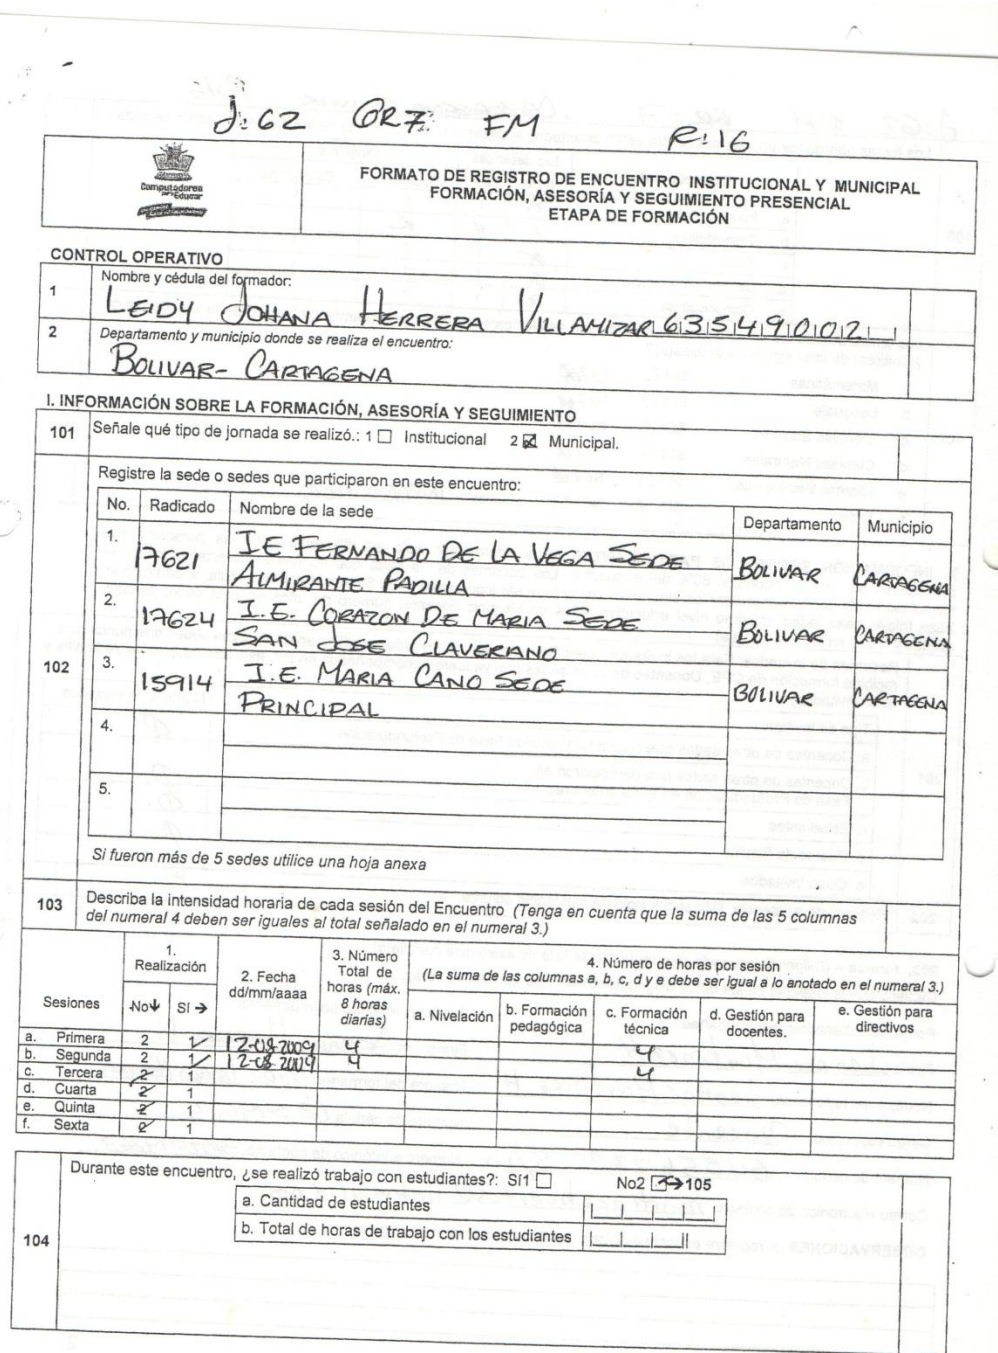 J:62 GR7: FM R:16
Computadores
para Educar
FORMATO DE REGISTRO DE ENCUENTRO INSTITUCIONAL Y MUNICIPAL
FORMACIÓN, ASESORÍA Y SEGUIMIENTO PRESENCIAL
ETAPA DE FORMACIÓN
CONTROL OPERATIVO
1 Nombre y cédula del formador:
LEIDY JOHANA HERRERA VILLAMIZAR 63549002
2 Departamento y municipio donde se realiza el encuentro:
BOLIVAR- CARTAGENA
I. INFORMACIÓN SOBRE LA FORMACIÓN, ASESORÍA Y SEGUIMIENTO
101 Señale qué tipo de jornada se realizó.: 1 ☐ Institucional 2 ☒ Municipal.
102 Registre la sede o sedes que participaron en este encuentro:
No. Radicado Nombre de la sede Departamento Municipio
1. 17621 IE FERNANDO DE LA VEGA SEDE BOLIVAR CARTAGENA
ALMIRANTE PADILLA
2. 17624 I.E. CORAZON DE MARIA SEDE BOLIVAR CARTAGENA
SAN JOSE CLAVERIANO
3. 15914 I.E. MARIA CANO SEDE BOLIVAR CARTAGENA
PRINCIPAL
4.
5.
Si fueron más de 5 sedes utilice una hoja anexa
103 Describa la intensidad horaria de cada sesión del Encuentro (Tenga en cuenta que la suma de las 5 columnas
del numeral 4 deben ser iguales al total señalado en el numeral 3.)
Sesiones
1.
Realización
No↓ SI →
2. Fecha
dd/mm/aaaa
3. Número
Total de
horas (máx.
8 horas
diarias)
4. Número de horas por sesión
(La suma de las columnas a, b, c, d y e debe ser igual a lo anotado en el numeral 3.)
a. Nivelación
b. Formación
pedagógica
c. Formación
técnica
d. Gestión para
docentes.
e. Gestión para
directivos
a. Primera 2 1 12-08-2009 4 4
b. Segunda 2 1 12-08-2009 4 4
c. Tercera 2 1
d. Cuarta 2 1
e. Quinta 2 1
f. Sexta 2 1
104 Durante este encuentro, ¿se realizó trabajo con estudiantes?: Sí1 ☐ No2 ☒→105
a. Cantidad de estudiantes
b. Total de horas de trabajo con los estudiantes